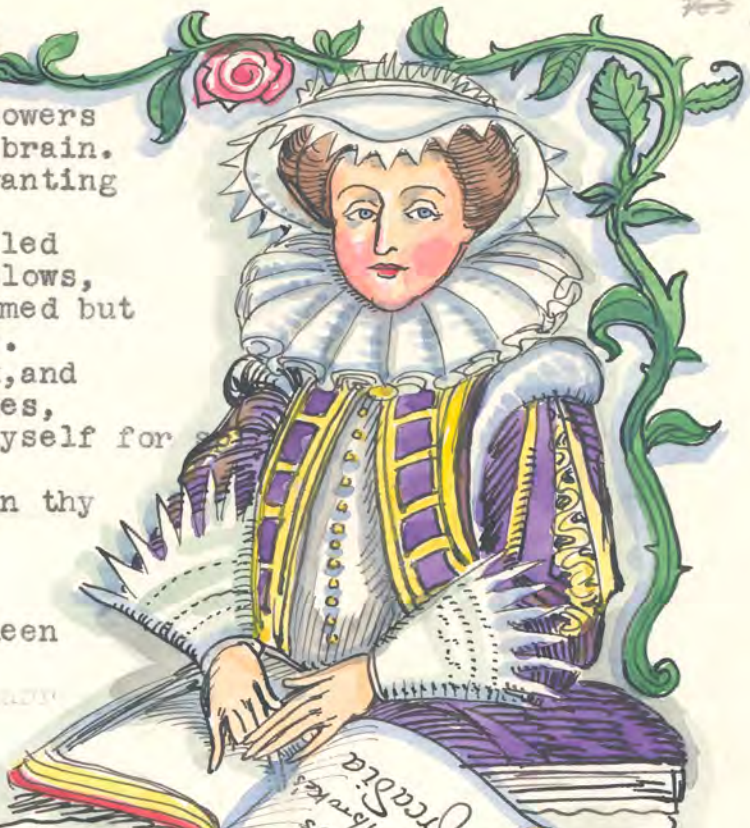 owers
brain.
anting
led
lows,
med but
.
,and
es,
yself for
n thy
een
rcadia